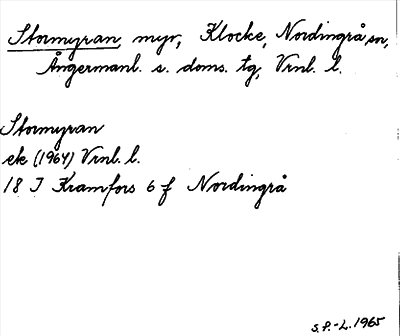 Stormyran, myr, Klocke, Nordingrå sn,
Ångermanl. s. doms. tg, Vrnl. l.
Stormyran
ek (1964) Vrnl. l.
18 J Kramfors 6 f Nordingrå
S.P.-L. 1965